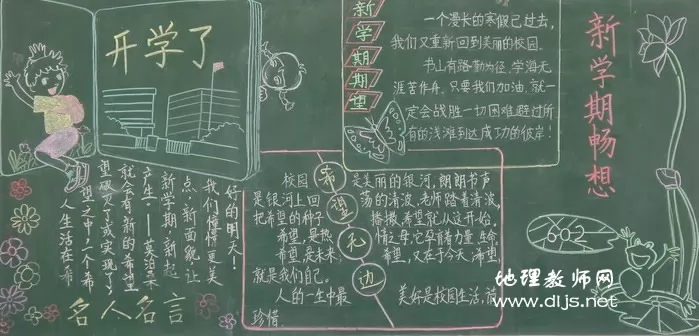 开学了
新学期期望
一个漫长的寒假已过去,
我们又重新回到美丽的校园。
书山有路勤为径,学海无
涯苦作舟。只要我们加油,就一
定会战胜一切困难避过所
有的浅滩到达成功的彼岸!
新学期畅想
人生活在希
望之中,一个希
望破灭了或实现了,
就会有新的希望
产生——莫泊桑
新学期、新起
点、新面貌让
我们憧憬更美
好的明天!
名人名言
希望无边
校园 是美丽的银河,朗朗书声
是银河上回 荡的清波,老师踏着清波,
把希望的种子 播撒,希望就从这开始。
希望,是热 情之母,它孕育着力量,生命
希望,是未来; 希望,又在于今天,希望
就是我们自己。
人的一生中最 美好是校园生活,请
珍惜。
602
地理教师网
www.dljs.net